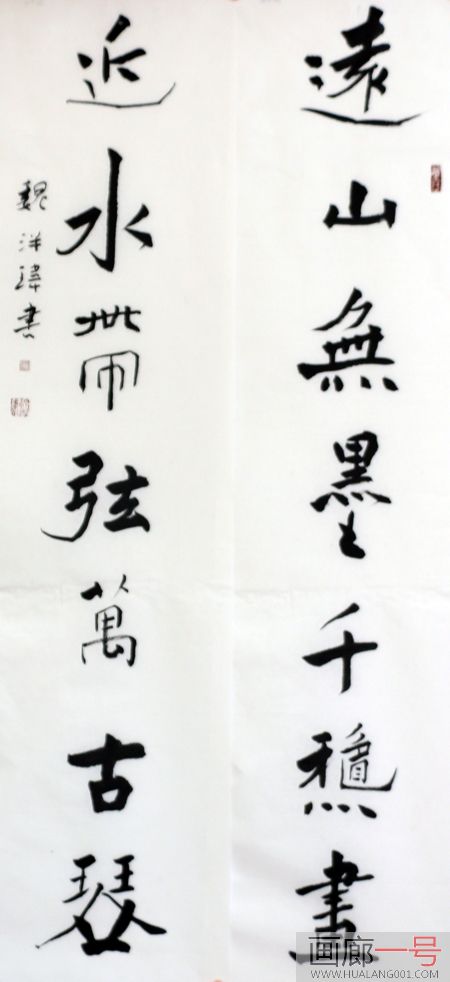 遠山無墨千穐畫
近水帶弦萬古瑟
魏洋瑋書
画廊一号
WWW.HUALANG001.COM